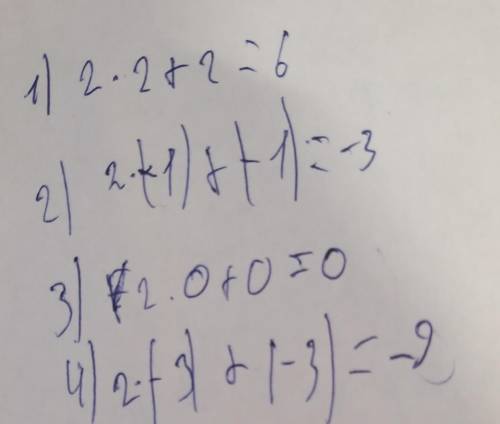 1) 2·2+2=6
2) 2·(-1)+(-1)=-3
3) 2·0+0=0
4) 2·(-3)+(-3)=-9